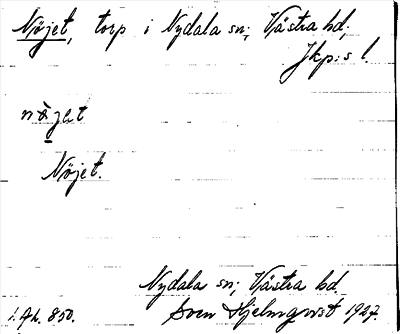 Nöjet, torp i Nydala sn; Västra hd;
Jkp:s l.
nöjet
Nöjet.
Nydala sn; Västra hd.
1:4h. 850. Sven Hjelmqvist 1927.